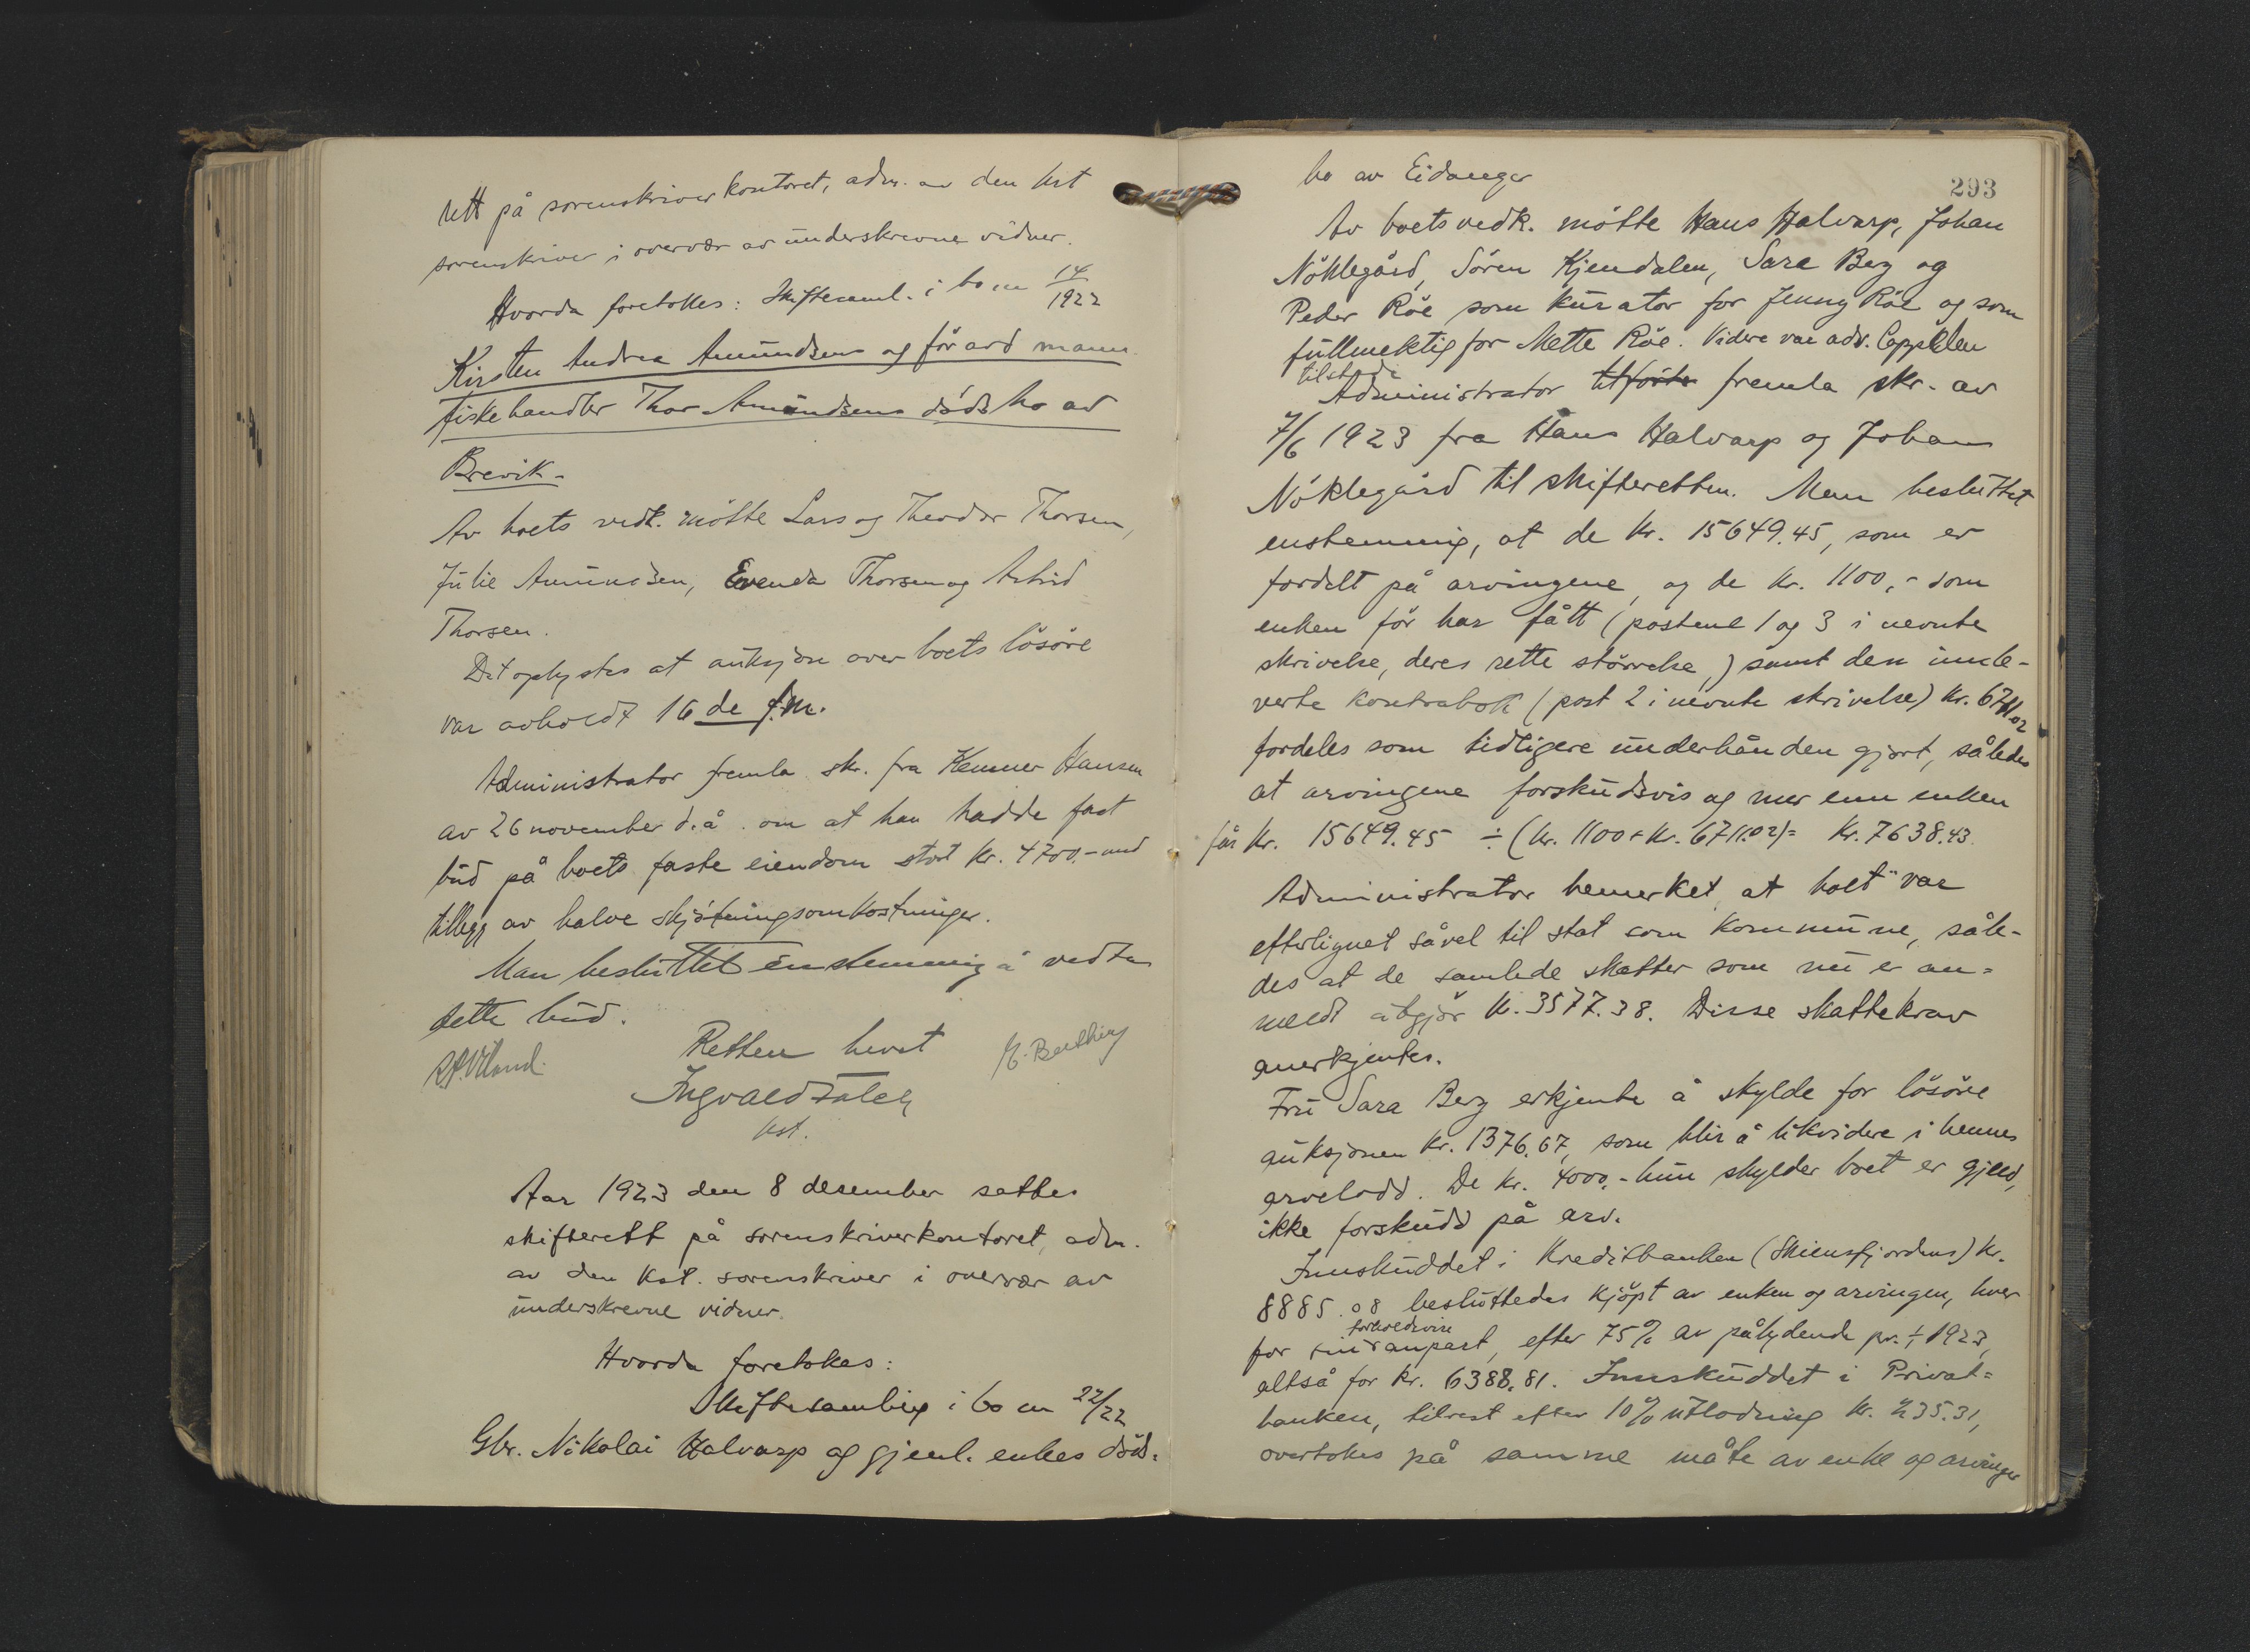 rett på sorenskriverkontoret, adm. av den kst
sorenskriver i overvær av underskrevne vidner.
Hvorda foretokes: Skiftesaml. i bo nr 14/1922
Kirsten Andrea Amundsens og før avd mann
fiskehandler Thor Amundsens dødsbo av
Brevik.
Av boets vedk. møtte Lars og Theodor Thorsen,
Julie Amundsen, Evenda Thorsen og Astrid
Thorsen.
Det oplystes at auksjon over boets løsøre
var avholdt 16de f.m.
Administrator fremla skr. fra Kemner Hansen
av 26 november d.å. om at han hadde fast
bud på boets faste eiendom stort kr. 4700.- med
tillegg av halve skjøtningsomkostninger.
Man besluttet enstemmig å vedta
dette bud.
Retten hevet
Ingvald Falch
kst.
Aar 1923 den 8 desember sattes
skifterett på sorenskriverkontoret, adm.
av den kst. sorenskriver i overvær av
underskrevne vidner.
Hvorda foretokes:
Skiftesamling i bo nr 22/22
Gbr. Nikolai Halvarp og gjenl. enkes døds-
293
bo av Eidanger
Av boets vedk. møtte Hans Halvarp, Johan
Nøklegård, Søren Kjendalen, Sara Berg og
Peder Røe som kurator for Jenny Røe og som
fullmektig for Mette Røe. Videre var adv. Cappelen
tilstede
Administrator tilførte fremla skr. av
7/6 1923 fra Hans Halvarp og Johan
Nøklegård til skifteretten. Man besluttet
enstemmig, at de kr. 15649.45, som er
fordelt på arvingene, og de kr. 1100,- som
enken før har fått (postene 1 og 3 i nevnte
skrivelse, deres rette størrelse,) samt den innle-
verte kontrabok (post 2 i nevnte skrivelse) kr. 6711.02
fordeles som tidligere underhånden gjort, således
at arvingene forskudsvis og mer enn enken
får kr. 15649.45 ÷ (kr. 1100 + kr. 6711.02) = kr. 7638.43.
Administrator bemerket, at boet var
efterlignet såvel til stat som kommune, såle-
des at de samlede skatter som nu er an-
meldt utgjør kr. 3577.38. Disse skattekrav
anerkjentes.
Fru Sara Berg erkjente å skylde for løsøre
auksjonen kr. 1376.67, som blir å likvidere i hennes
arvelodd. De kr. 4000.- hun skylder boet er gjeld,
ikke forskudd på arv.
Innskuddet i Kreditbanken (Skiensfjordens) kr.
8885.08 besluttedes kjøpt av enken og arvingen, hver
forholdsvise
for sin anpart, efter 75% av pålydende pr. 1/1 1923,
altså for kr. 6388.81. Innskuddet i Privat-
banken, tilrest efter 10% utlodning kr. 235.31,
overtokes på samme måte av enke og arvinger